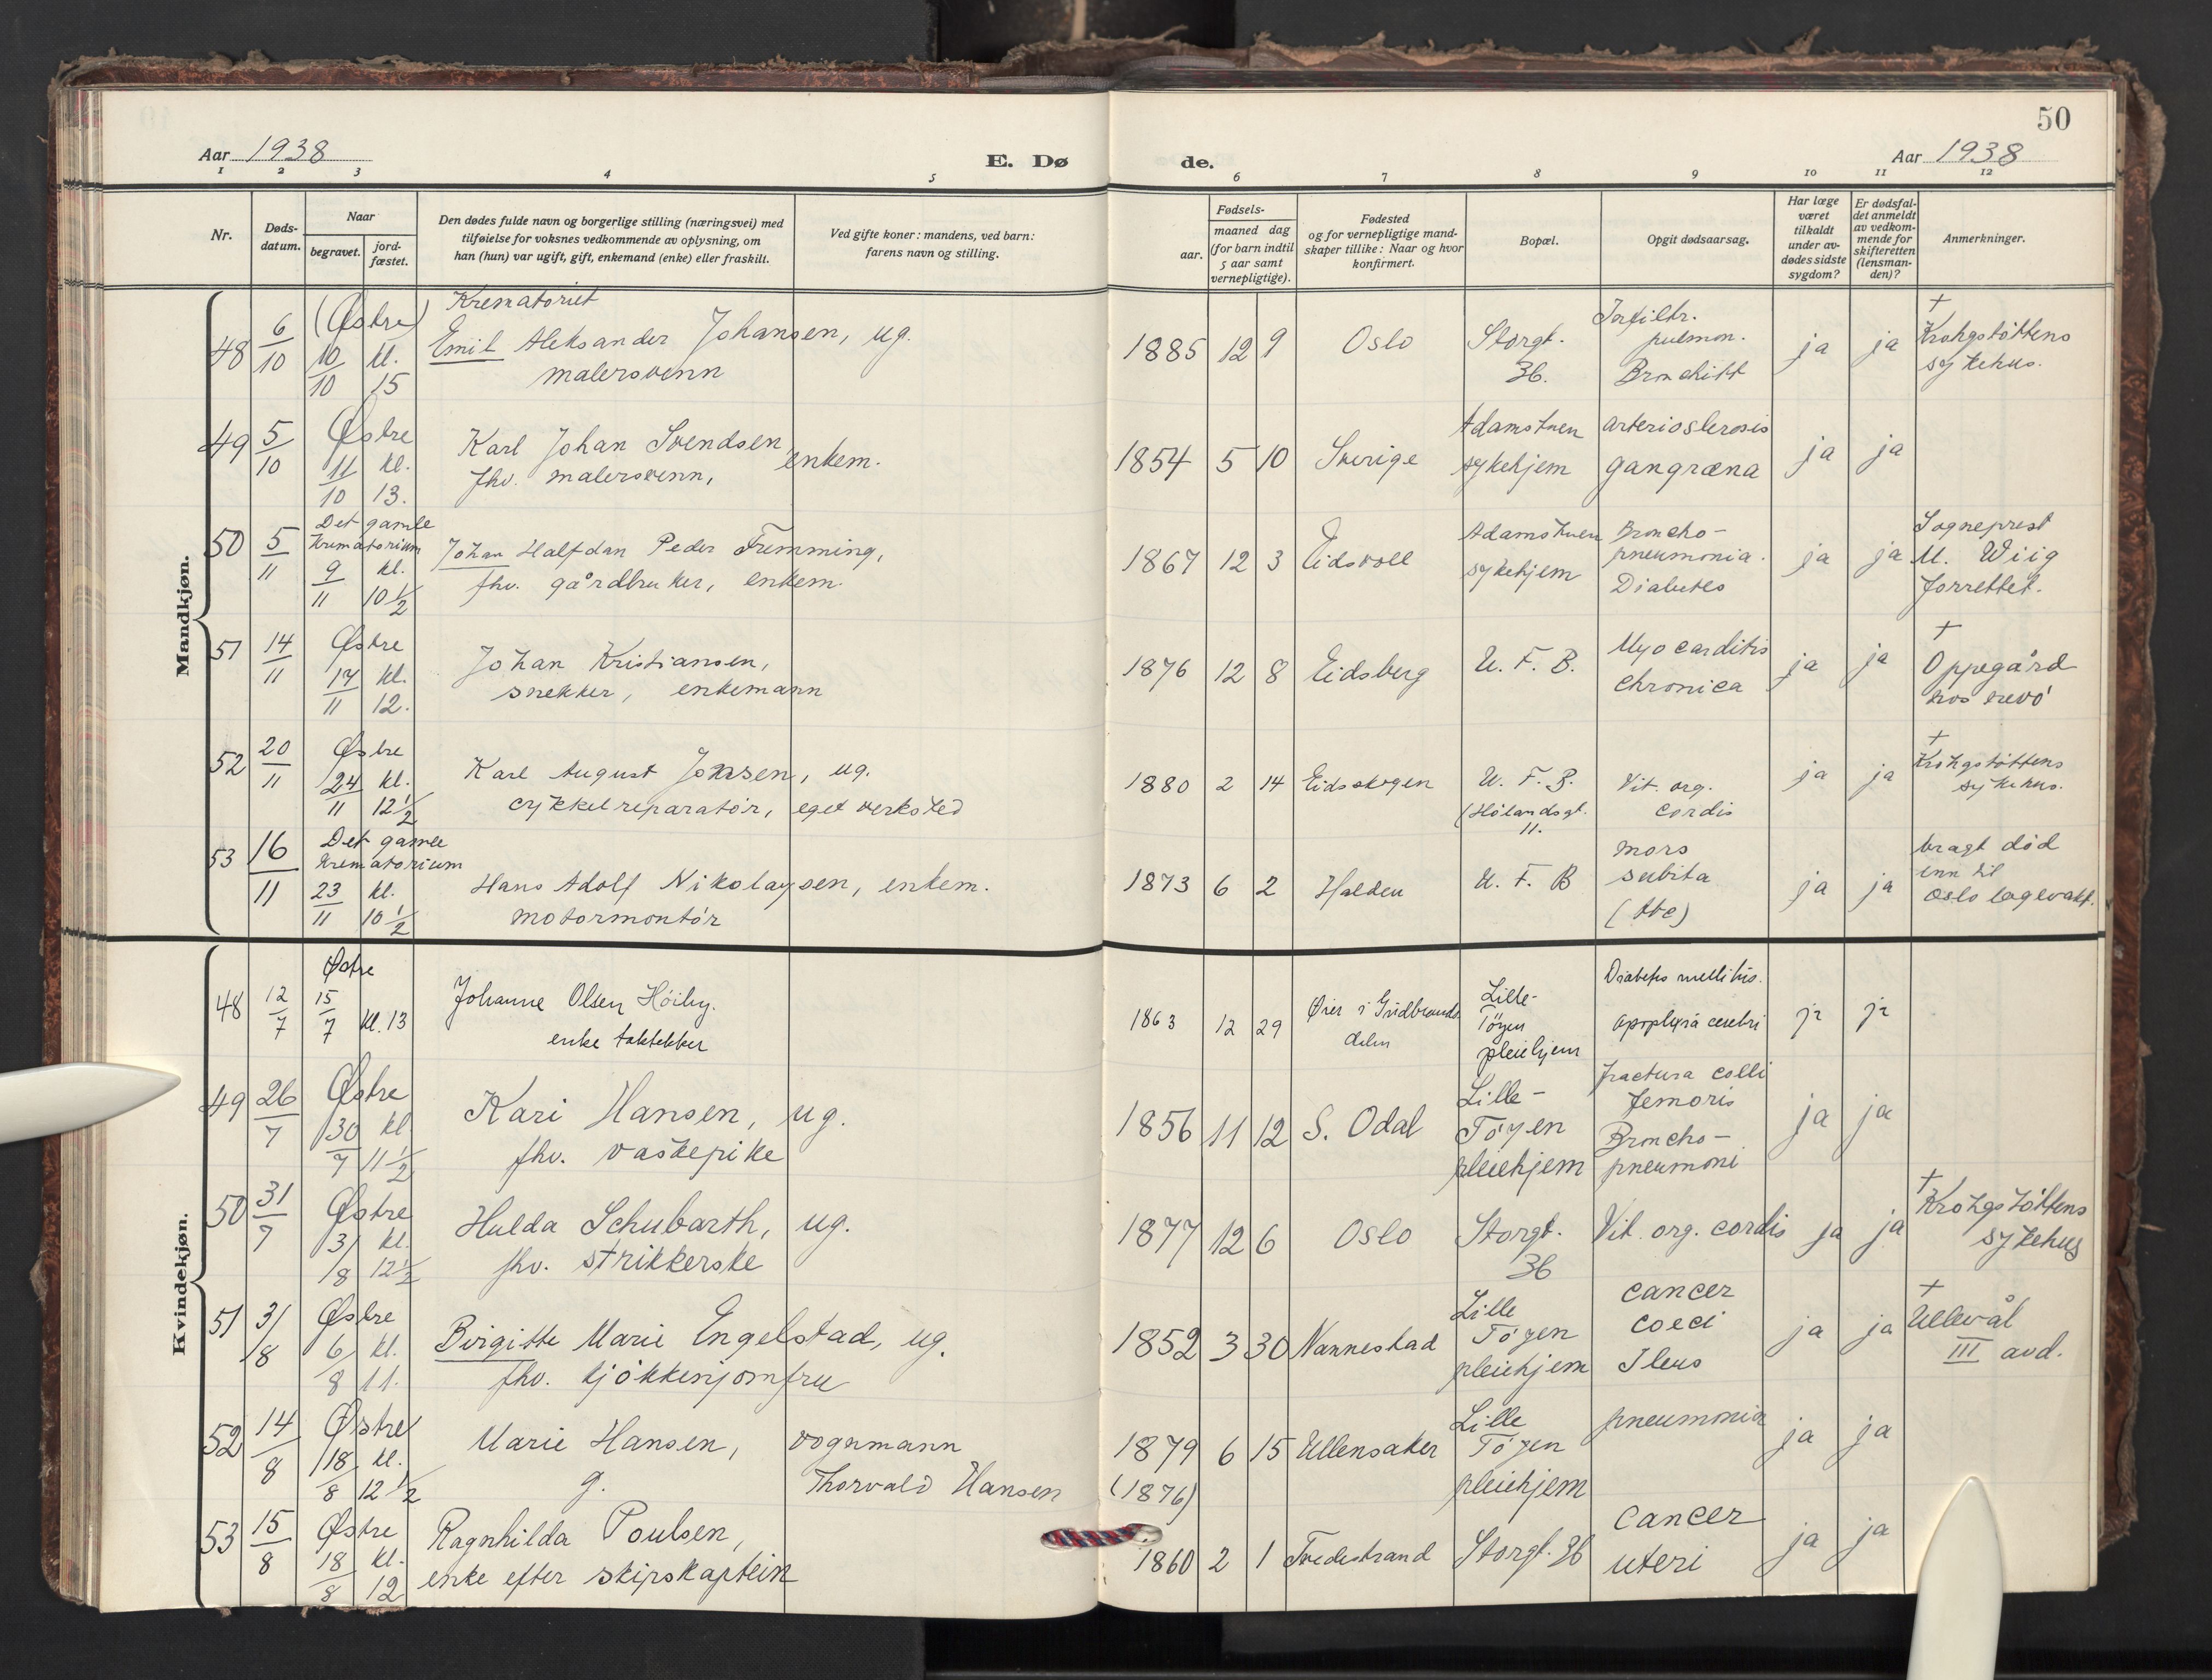 50
Aar 1938
E. Dø
de.
Aar 1938
1 2 3 4 5 6 7 8 9 10 11 12
Nr.
Døds-
datum.
Naar
begravet.
jord-
fæstet.
Den dødes fulde navn og borgerlige stilling (næringsvei) med
tilføielse for voksnes vedkommende av oplysning, om
han (hun) var ugift, gift, enkemand (enke) eller fraskilt.
Ved gifte koner: mandens, ved barn:
farens navn og stilling.
Fødsels-
aar.
maaned dag
(for barn indtil
5 aar samt
vernepligtige).
Fødested
og for vernepligtige mand-
skaper tillike: Naar og hvor
konfirmert.
Bopæl.
Opgit dødsaarsag.
Har læge
været
tilkaldt
under av-
dødes sidste
sygdom?
Er dødsfal-
det anmeldt
av vedkom-
mende for
skifteretten
(lensman-
den)?
Anmerkninger.
Mandkjøn.
48 6/10 (Østre) Krematoriet
10/10 kl. 15
Emil Aleksander Johansen, ug.
malersvenn
1885 12 9 Oslo
Storgt.
36.
Infiltr.
pulmon.
Bronchitt
ja ja
†
Krohgstøttens
sykehus.
49 5/10 Østre
11/10 kl. 13.
Karl Johan Svendsen enkem.
fhv. malersvenn,
1854 5 10 Sverige
Adamstuen
sykehjem
arterioslerosis
gangræna
ja ja
50 5/11 Det gamle
Krematorium
9/11 kl. 10 1/2
Johan Halfdan Peder Fremming,
fhv. gårdbruker, enkem.
1867 12 3 Eidsvoll
Adamstuen
sykehjem
Broncho-
pneumonia.
Diabetes
ja ja
Sogneprest
M. Wiig
forrettet.
51 14/11 Østre
17/11 kl. 12.
Johan Kristiansen,
snekker, enkemann
1876 12 8 Eidsberg
U. F. B.
Myocarditis
chronica
ja ja
†
Oppegård
52 20/11 Østre
24/11 kl. 12 1/2
Karl August Jonsen, ug.
cykkelreparatör, eget verksted
1880 2 14 Eidsskogen
U. F. B.
(Hölandsgt.
11.
Vit. org.
cordis
ja ja
†
Krohgstøttens
sykehus.
53 16/11 Det gamle
Krematorium
23/11 kl. 10 1/2
Hans Adolf Nikolaysen, enkem.
motormontör
1873 6 2 Halden
U. F. B
mors
subita
(tbc)
ja ja
bragt död
inn til
Oslo legevakt.
Kvindekjøn.
48 12/7 Østre
15/7 kl. 13
Johanne Olsen Höiby.
enke taktekker
1863 12 29 Øier i Gudbrands
dalen
Lille-
Töyen
pleiehjem
Diabetes mellitus.
apoplexia cerebri
ja ja
49 26/7 Østre
30/7 kl. 11 1/2
Kari Hansen, ug.
fhv. vaskepike
1856 11 12 S. Odal
Lille-
Töyen
pleiehjem
fractura colli
femoris
Broncho-
pneumoni
ja ja
50 31/7 Østre
3/8 kl. 12 1/2
Hulda Schubarth, ug.
fhv. strikkerske
1877 12 6 Oslo
Storgt.
36
Vit. org. cordis
ja ja
†
Krohgstöttens
sykehus
51 3/8 Østre
6/8 kl. 11.
Birgitte Marie Engelstad, ug.
fhv. kjökkenjomfru
1852 3 30 Nannestad
Lille
Töyen
pleiehjem
cancer
coeci
Ileus
ja ja
†
Ullevål
III avd.
52 14/8 Østre
18/8 kl. 12 1/2
Marie Hansen, vognmann
g. Thorvald Hansen
1879 6 15 Ullensaker
(1876)
Lille
Töyen
pleiehjem
pneumonia
ja ja
53 15/8 Østre
18/8 kl. 12
Ragnhilda Poulsen,
enke efter skipskaptein
1860 2 1 Tvedestrand
Storgt. 36
cancer
uteri
ja ja